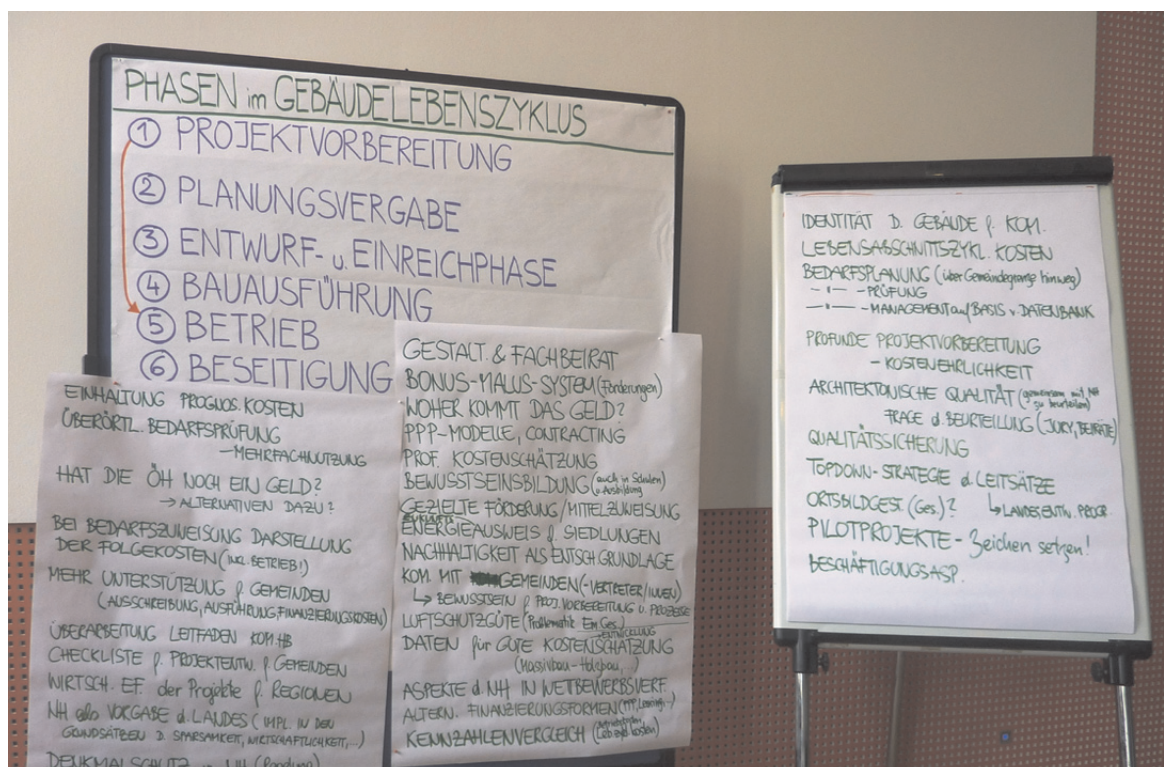 PHASEN im GEBÄUDELEBENSZYKLUS
① PROJEKTVORBEREITUNG
② PLANUNGSVERGABE
③ ENTWURF- u. EINREICHPHASE
④ BAUAUSFÜHRUNG
⑤ BETRIEB
⑥ BESEITIGUNG
EINHALTUNG PROGNOS. KOSTEN
ÜBERÖRTL. BEDARFSPRÜFUNG
– MEHRFACHNUTZUNG
HAT DIE ÖH NOCH EIN GELD?
→ ALTERNATIVEN DAZU?
BEI BEDARFSZUWEISUNG DARSTELLUNG
DER FOLGEKOSTEN (INKL. BETRIEB!)
MEHR UNTERSTÜTZUNG f. GEMEINDEN
(AUSSCHREIBUNG, AUSFÜHRUNG, FINANZIERUNGSKOSTEN)
ÜBERARBEITUNG LEITFADEN KOM.HB
CHECKLISTE f. PROJEKTENTW. f. GEMEINDEN
WIRTSCH. EF. der Projekte f. REGIONEN
NH als VORGABE d. LANDES (IMPL. IN DEN
GRUNDSÄTZEN D. SPARSAMKEIT, WIRTSCHAFTLICHKEIT,...)
DENKMALSCHUTZ NH
GESTALT. & FACHBEIRAT
BONUS-MALUS-SYSTEM (Förderungen)
WOHER KOMMT DAS GELD?
PPP-MODELLE, CONTRACTING
PROF. KOSTENSCHÄTZUNG
BEWUSSTSEINSBILDUNG (auch in Schulen u. Ausbildung)
GEZIELTE FÖRDERUNG/MITTELZUWEISUNG
ENERGIEAUSWEIS f. SIEDLUNGEN
NACHHALTIGKEIT ALS ENTSCH. GRUNDLAGE
KOM. MIT GEMEINDEN (-VERTRETER/INNEN)
↳ BEWUSSTSEIN f. PROJ. VORBEREITUNG u. PROZESSE
LUFTSCHUTZGÜTE (Problematik Em. Ges.)
→ ENTWICKLUNG
DATEN für GUTE KOSTENSCHÄTZUNG
(Massivbau-Holzbau,...)
ASPEKTE d. NH IN WETTBEWERBSVERF.
ALTERN. FINANZIERUNGSFORMEN (PPP, Leasing...)
KENNZAHLENVERGLEICH
IDENTITÄT D. GEBÄUDE f. KOM.
LEBENSABSCHNITTSZYKL. KOSTEN
BEDARFSPLANUNG (über Gemeindegrenze hinweg)
— " — - PRÜFUNG
— " — - MANAGEMENT auf BASIS v. DATENBANK
PROFUNDE PROJEKTVORBEREITUNG
- KOSTENEHRLICHKEIT
ARCHITEKTONISCHE QUALITÄT (gemeinsam mit NH zu beurteilen)
FRAGE d. BEURTEILUNG (JURY, BEIRÄTE)
QUALITÄTSSICHERUNG
TOPDOWN-STRATEGIE d. LEITSÄTZE
ORTSBILDGEST. (Ges.)? ↳ LANDESENTW. PROGR.
PILOTPROJEKTE - Zeichen setzen!
BESCHÄFTIGUNGSASP.